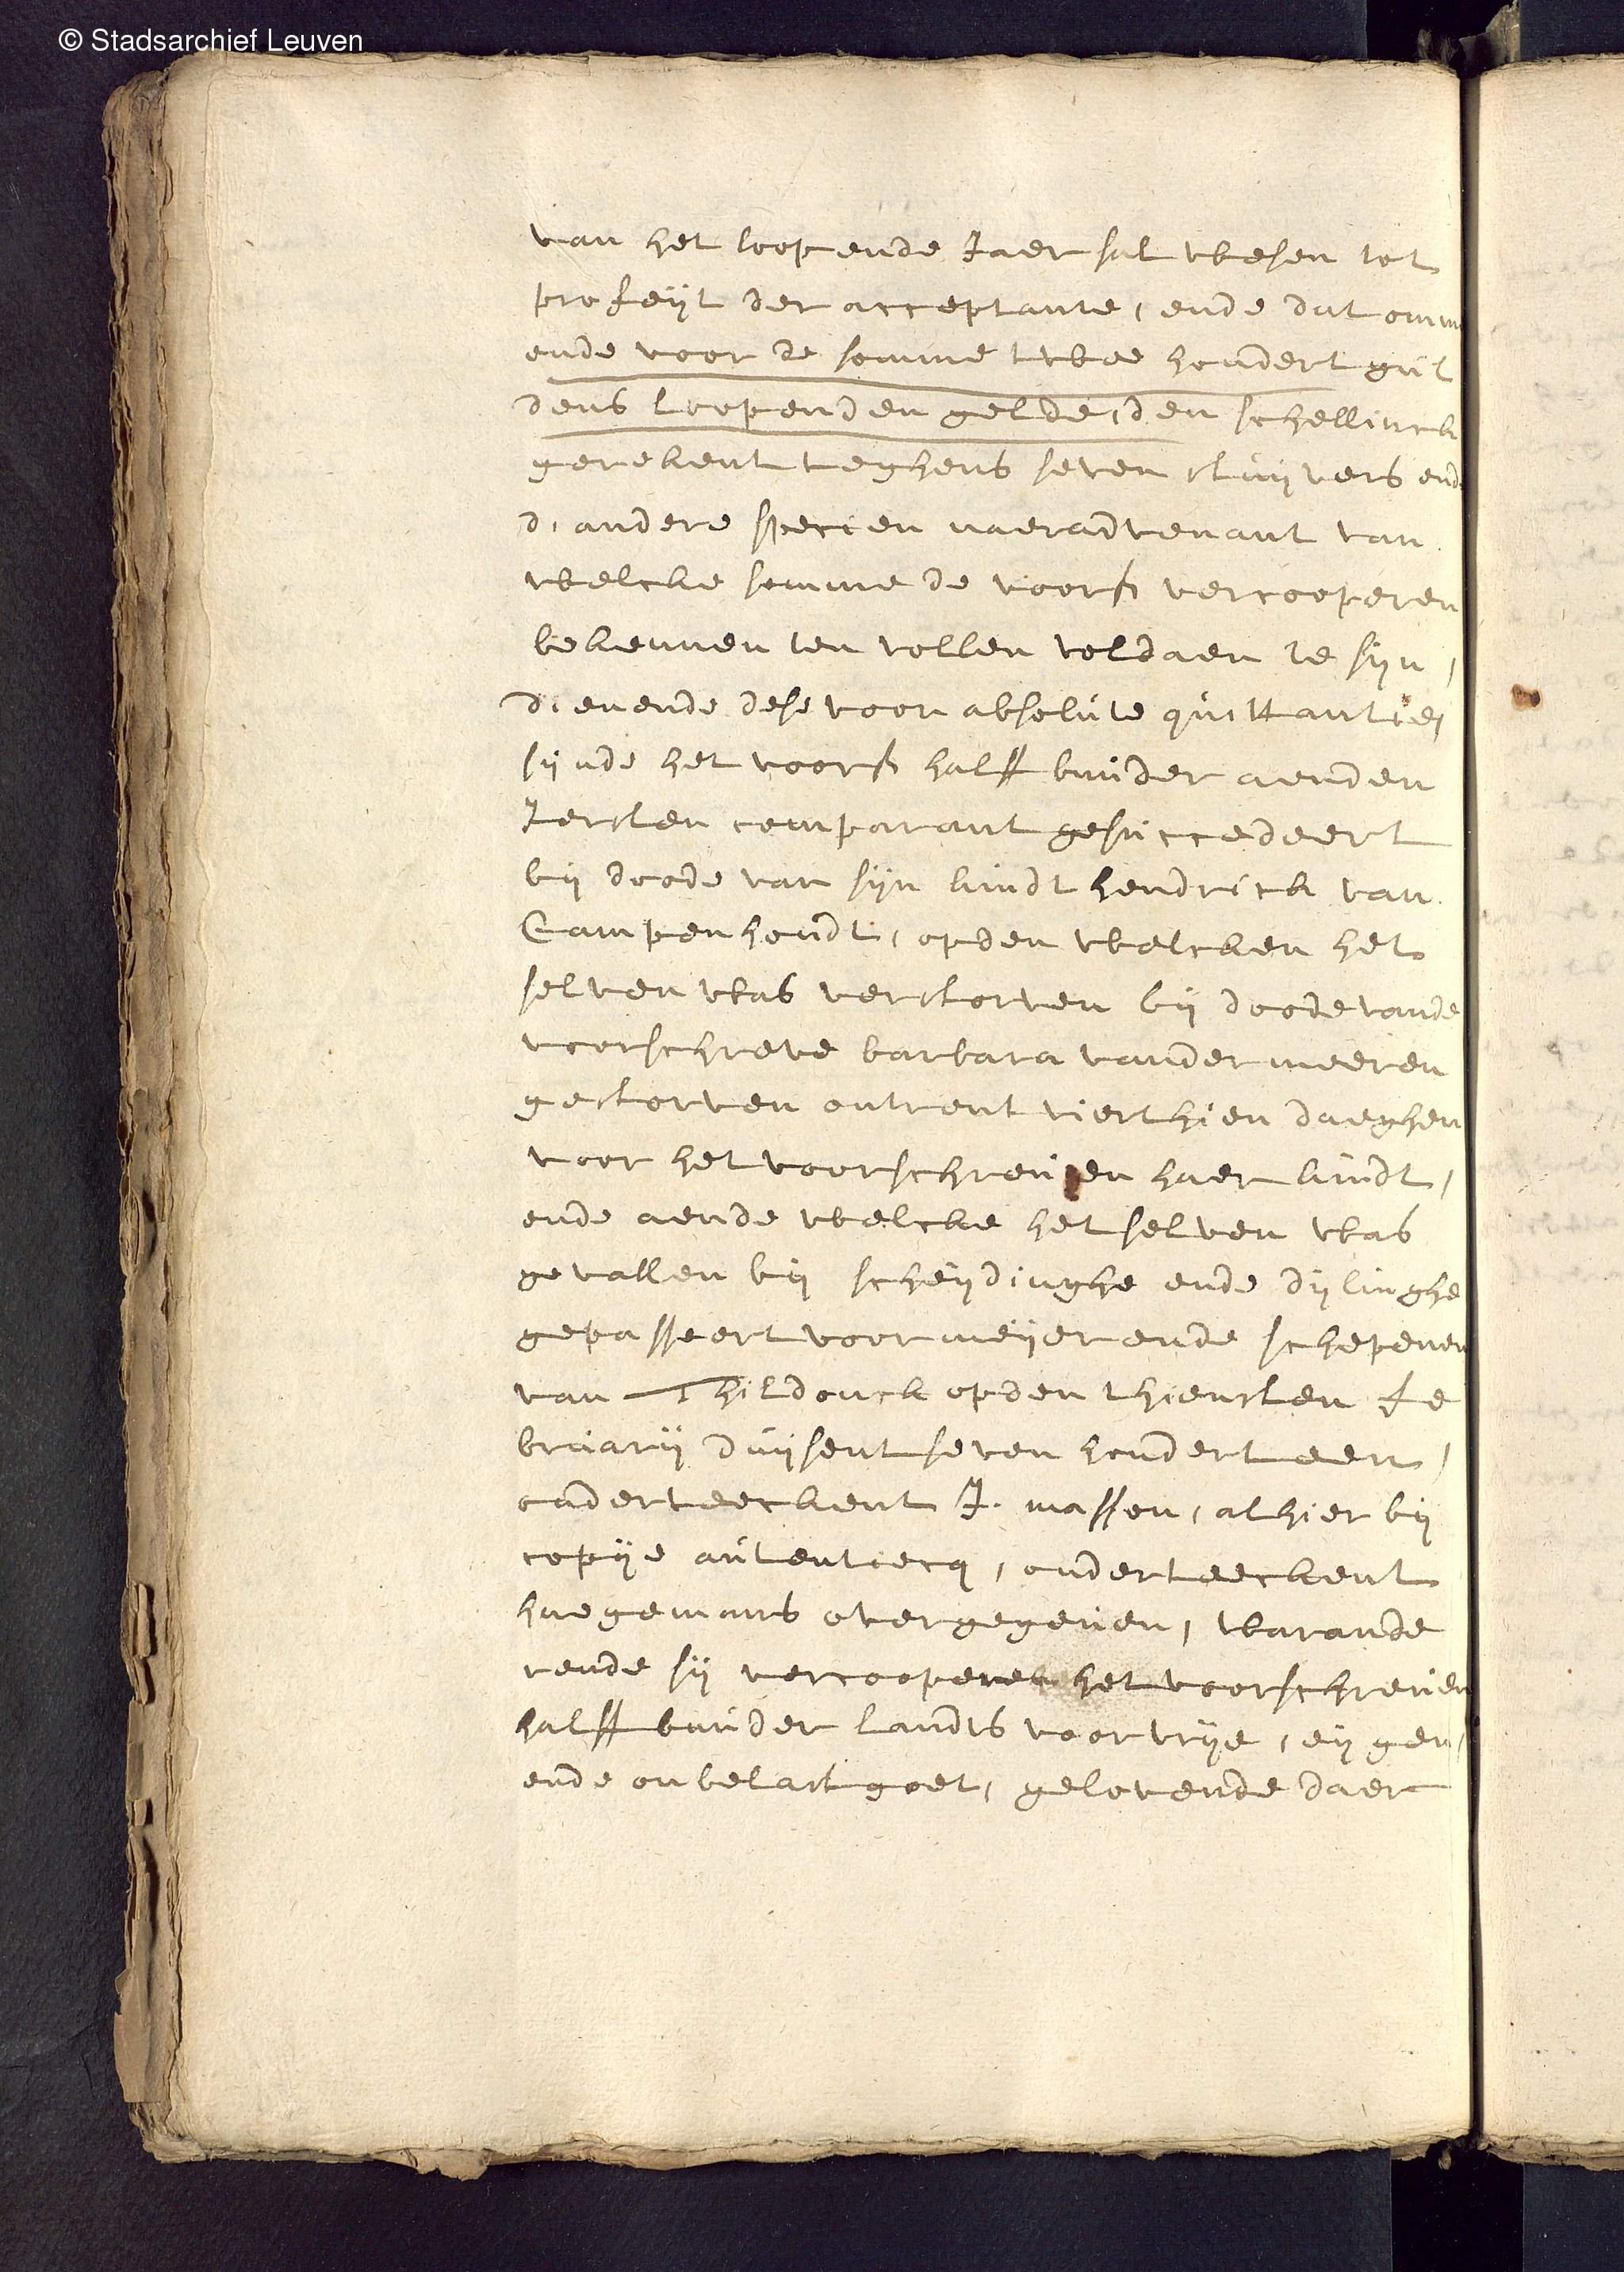 © Stadsarchief Leuven
van het loopende Jaer sal wesen tot
profeijt der acceptante, ende dat omme
ende voor de somme twee hondert gul
dens loopenden gelde, den schellinck
gerekent teghens seven stuijvers ende
d'andere specien naer advenant van
welcke somme de voors vercooperen
bekennen ten vollen voldaen te sijn,
dienende dese voor absolute quittantie,
sijnde het voors halff bunder aenden
Iersten comparant gesuccedeert
bij doode van sijn kindt hendrick van
Campenhoudt, opden welcken het
selven was verstorven bij doode vande
voorschreve barbara vander meeren
gestorven ontrent vierthien daeghen
voor het voorschreven haer kindt,
ende aende welcke het selven was
gevallen bij scheijdinghe ende dijlinghe
gepasseert voor meijer ende schepenen
van Thildonck opden thiensten fe
bruarij duijsent seven hondert een,
onderteeckent J. massen, alhier bij
copije autenticq, onderteeckent
haegemans overgegeven, warande
rende sij vercooperen het voorschreven
halff bunder landts voor vrije, eijgen,
ende onbelast goet, gelovende daer